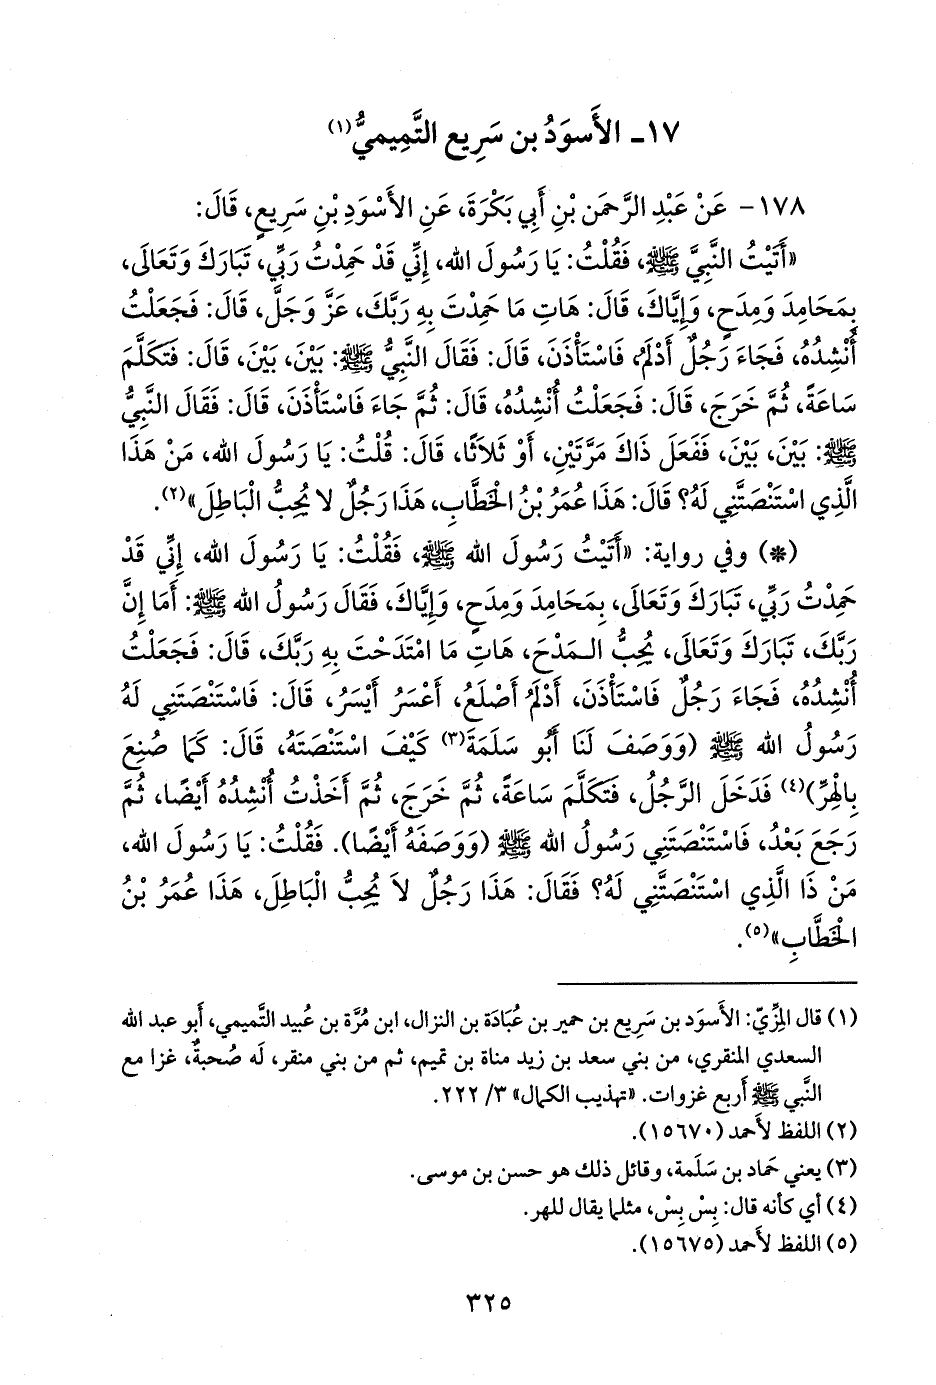 ١٧ـ الأَسوَدُ بن سَرِيع التَّمِيميُّ(١)
١٧٨ - عَنْ عَبْدِ الرَّحمَن بْنِ أَبِي بَكْرَةَ، عَنِ الأَسْوَدِ بْنِ سَرِيعٍ، قَالَ:
«أَتَيْتُ النَّبِيَّ ﷺ، فَقُلْتُ: يَا رَسُولَ الله، إِنِّي قَدْ حَمِدْتُ رَبِّي، تَبَارَكَ وَتَعَالَى،
بِمَحَامِدَ وَمِدَحٍ، وَإِيَّاكَ، قَالَ: هَاتِ مَا حَمِدْتَ بِهِ رَبَّكَ، عَزَّ وَجَلَّ، قَالَ: فَجَعَلْتُ
أُنْشِدُهُ، فَجَاءَ رَجُلٌ أَدْلَمُ، فَاسْتَأْذَنَ، قَالَ: فَقَالَ النَّبِيُّ ﷺ: بَيْنَ، بَيْنَ، قَالَ: فَتَكَلَّمَ
سَاعَةً، ثُمَّ خَرَجَ، قَالَ: فَجَعَلْتُ أُنْشِدُهُ، قَالَ: ثُمَّ جَاءَ فَاسْتَأْذَنَ، قَالَ: فَقَالَ النَّبِيُّ
ﷺ: بَيْنَ، بَيْنَ، فَفَعَلَ ذَاكَ مَرَّتَيْنِ، أَوْ ثَلاَثًا، قَالَ: قُلْتُ: يَا رَسُولَ الله، مَنْ هَذَا
الَّذِي اسْتَنْصَتَّنِي لَهُ؟ قَالَ: هَذَا عُمَرُ بْنُ الْخَطَّابِ، هَذَا رَجُلٌ لا يُحِبُّ الْبَاطِلَ»(٢).
(*) وفي رواية: «أَتَيْتُ رَسُولَ الله ﷺ، فَقُلْتُ: يَا رَسُولَ الله، إِنِّي قَدْ
حَمِدْتُ رَبِّي، تَبَارَكَ وَتَعَالَى، بِمَحَامِدَ وَمِدَحٍ، وَإِيَّاكَ، فَقَالَ رَسُولُ الله ﷺ: أَمَا إِنَّ
رَبَّكَ، تَبَارَكَ وَتَعَالَى، يُحِبُّ الـمَدْحَ، هَاتِ مَا امْتَدَحْتَ بِهِ رَبَّكَ، قَالَ: فَجَعَلْتُ
أُنْشِدُهُ، فَجَاءَ رَجُلٌ فَاسْتَأْذَنَ، أَدْلَمُ أَصْلَعُ، أَعْسَرُ أَيْسَرُ، قَالَ: فَاسْتَنْصَتَنِي لَهُ
رَسُولُ الله ﷺ (وَوَصَفَ لَنَا أَبُو سَلَمَةَ(٣) كَيْفَ اسْتَنْصَتَهُ، قَالَ: كَمَا صُنِعَ
بِالْهِرِّ)(٤) فَدَخَلَ الرَّجُلُ، فَتَكَلَّمَ سَاعَةً، ثُمَّ خَرَجَ، ثُمَّ أَخَذْتُ أُنْشِدُهُ أَيْضًا، ثُمَّ
رَجَعَ بَعْدُ، فَاسْتَنْصَتَنِي رَسُولُ الله ﷺ (وَوَصَفَهُ أَيْضًا). فَقُلْتُ: يَا رَسُولَ الله،
مَنْ ذَا الَّذِي اسْتَنْصَتَّنِي لَهُ؟ فَقَالَ: هَذَا رَجُلٌ لاَ يُحِبُّ الْبَاطِلَ، هَذَا عُمَرُ بْنُ
الْخَطَّابِ»(٥).
(١) قال المِزِّيّ: الأَسوَد بن سَرِيع بن حمير بن عُبَادَة بن النزال، ابن مُرَّة بن عُبيد التَّميمي، أَبو عبد الله
السعدي المنقري، من بني سعد بن زيد مناة بن تميم، ثم من بني منقر، لَه صُحبةٌ، غزا مع
النَّبي ﷺ أَربع غزوات. «تهذيب الكمال» ٣/ ٢٢٢.
(٢) اللفظ لأَحمد (١٥٦٧٠).
(٣) يعني حَماد بن سَلَمة، وقائل ذلك هو حسن بن موسى.
(٤) أي كأنه قال: بِسْ بِسْ، مثلما يقال للهر.
(٥) اللفظ لأَحمد (١٥٦٧٥).
٣٢٥